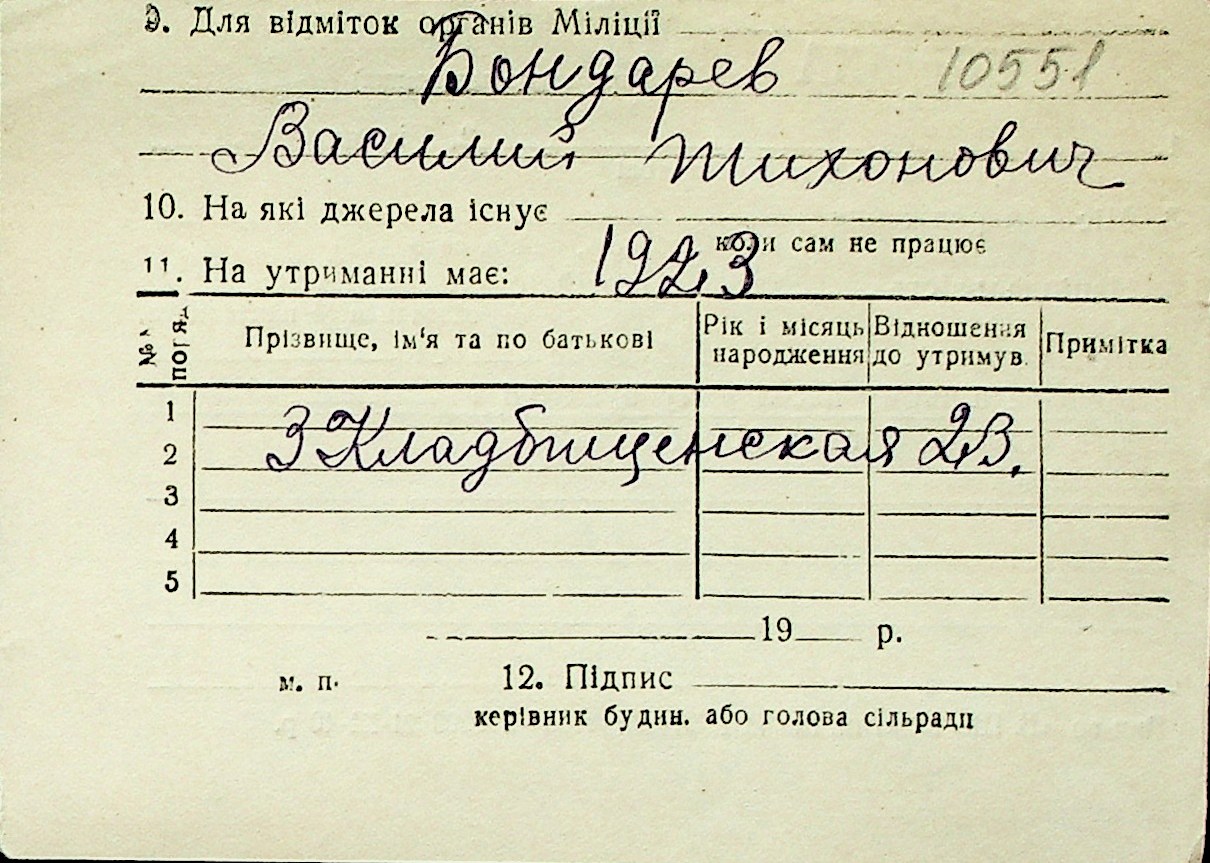 9. Для відміток органів Міліції
Бондарев 10551
Василий Тихонович
10. На які джерела існує
коли сам не працює
1923
11. На утриманні має:
№№ Прізвище, ім'я та по батькові Рік і місяць народження Відношення до утримув. Примітка
1
2 3 Кладбищенская 23.
3
4
5
19 р.
м. п. 12. Підпис
керівник будин. або голова сільради